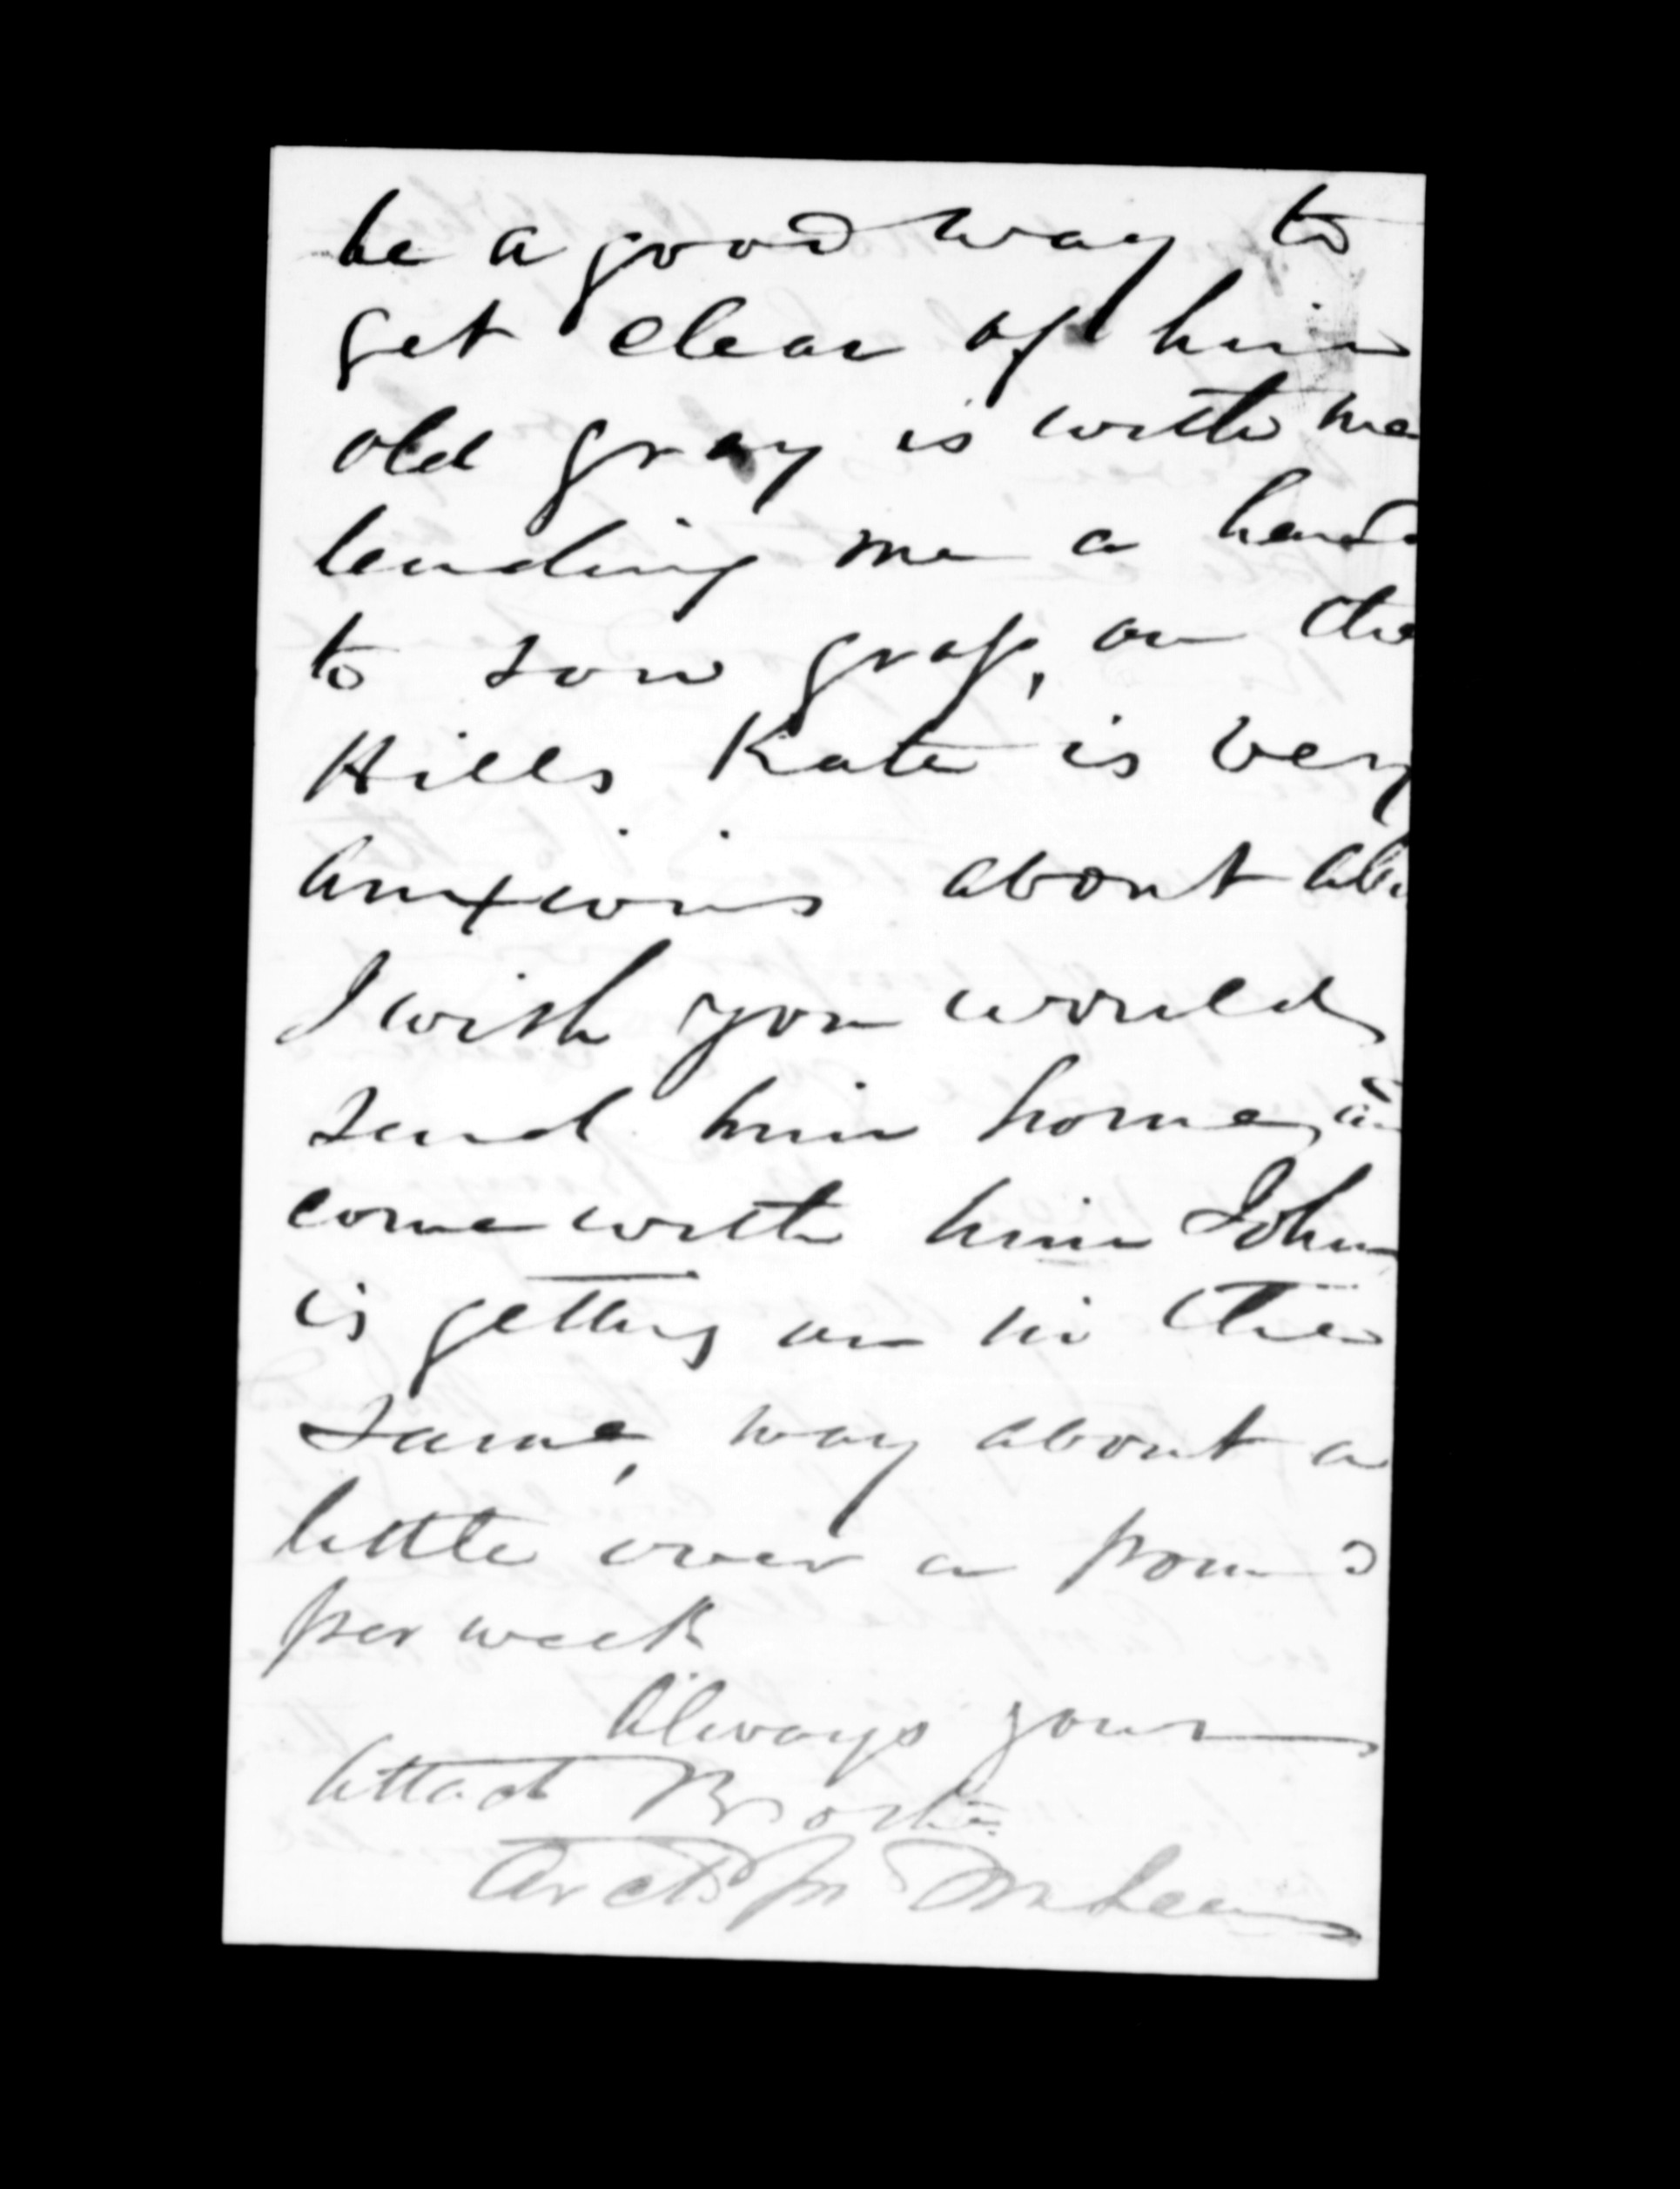 be a good way to
get clear of him
old gray is with me
lending me a hand
to sow grass, on the
Hills Kate is very
anxious about
I wish you would
send him home,
come with him John
is getting on in the
same, way about a
little over a pound
per week
Always your
attach Brother
Archd Jn McLean